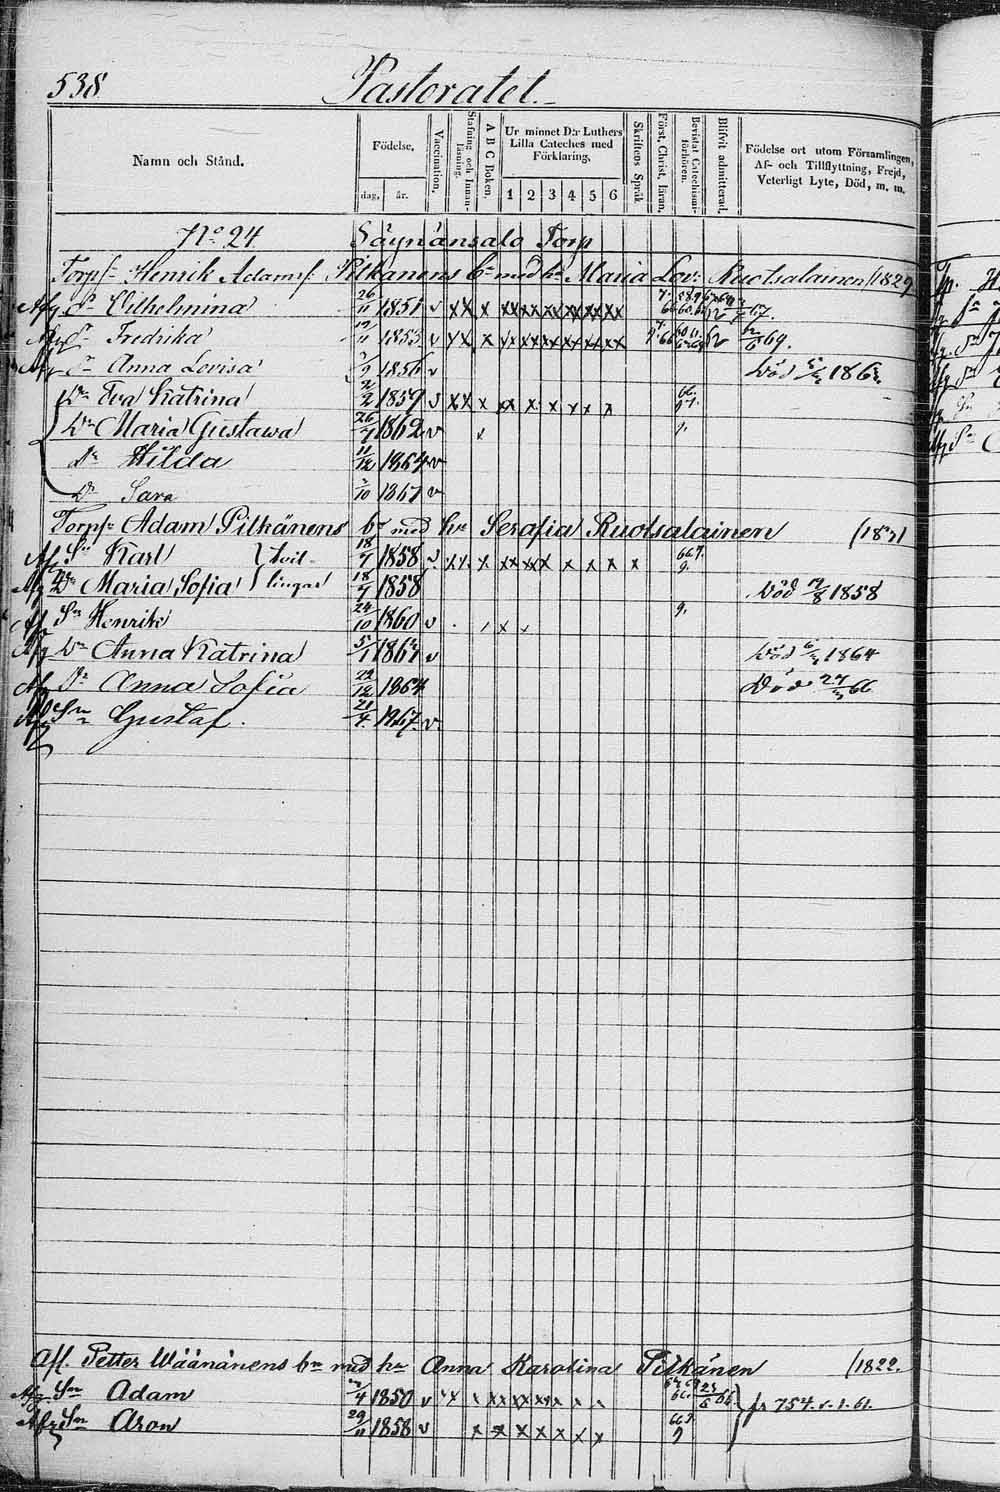 538 Pastoratet.
Namn och Stånd. Födelse, dag, år. Vaccination, Stafning och Innanläsning. A B C Boken, Ur minnet D:r Luthers Lilla Cateches med Förklaring, 1 2 3 4 5 6 Skriftens Språk Först. Christ. läran, Bevistat Catechismiförhören. Blifvit admitterad, Födelse ort utom Församlingen, Af- och Tillflyttning, Frejd, Veterligt Lyte, Död, m. m.
No 24 Säynänsalo Torp
Torp. Henrik Adamsf. Pitkänens b:n med h:n Maria Lov: Ruotsalainen /1829
Afg Dr Vilhelmina 26/11 1851 v xx x xx xx xx xx xx xx 67.
Afg Dr Fredrika 11 1853 v xx x xx xx xx xx xx xx 69.
Afg Dr Anna Lovisa 1856 v Död
Dr Eva Katrina 2/2 1859 v xx x xx x x x x x
Dr Maria Gustawa 26/7 1862 v x
Dr Hilda 11/12 1864 v
Dr Sara /10 1867 v
Torp. Adam Pitkänens br med hn Serafia Ruotsalainen /1831
Af Sn Karl } Tvil- 18/7 1858 v xx x xx xx x x x x x 667. 9.
Afg Dr Maria Sofia } lingar 18/7 1858 Död /8 1858
Af Sn Henrik 24/10 1860 v x 9.
Afg Dr Anna Katrina 5/1 186 v Död 1864
Afg Dr Anna Sofia 22/12 1864 Död 66
Afg Sn Gustaf. 21/4. 1867. v.
Afl. Petter Wäänänens bn med hn Anna Karolina Pitkänen /1822.
Afg. Sn Adam /4 1850 v } fr 754. v. 1. 61.
Afg Sn Aron 29/11 1858 v x x x x x x x 9